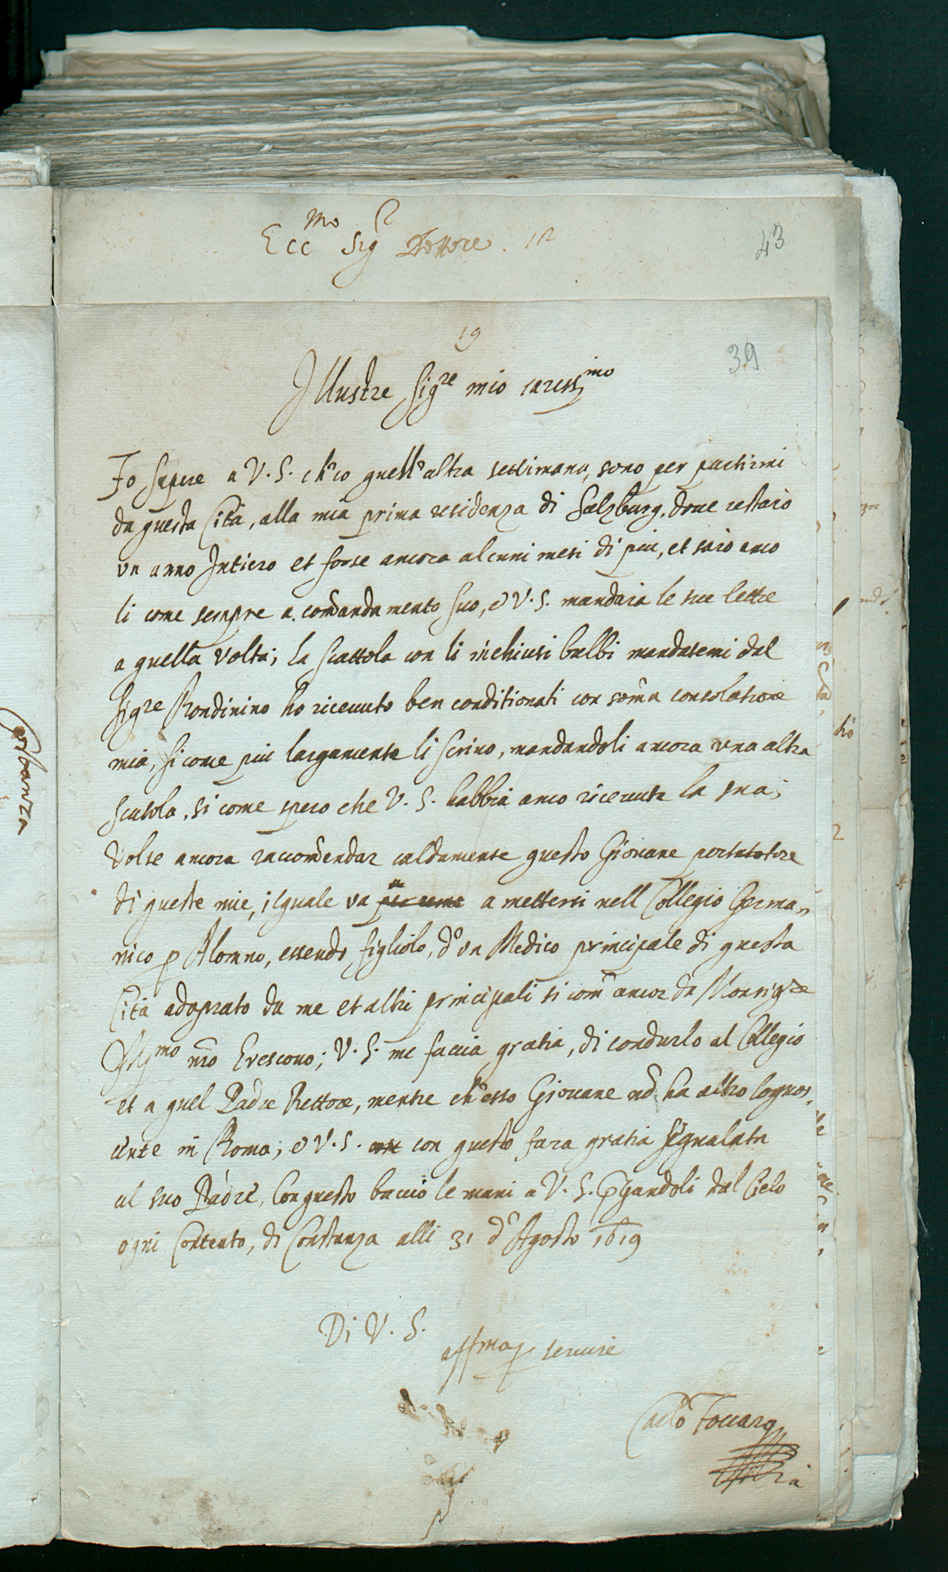 Ecc.mo Sig.r Dottore. 112
43
19
39
Illustre Sig.re mio cariss.imo
Fo sapere a V.S. ch'io quell'altra settimana, sono per partirmi
da questa Cità, alla mia prima residenza di Salzburg, doue restarò
un anno Intiero et forse ancora alcuni mesi di piu, et sarò anco
li come sempre a com̃andamento suo, e V.S. mandarà le sue lettre
a quella volta; la scattola con li inchiusi bulbi mandatemi dal
Sig.re Rondinino ho riceuuto ben conditionati con som̃a consolatione
mia, si come piu largamente li scriuo, mandandoli ancora vna altra
scatola, si come spero che V.S. habbia anco riceuute la sua;
Volse ancora raccom̃endar caldamente questo Giouane portatore
di queste mie, il quale va a mettersi nell Collegio Germa-
nico p Alonno, essendo figliolo, d'un Medico principale di questa
Cità adoprato da me et altri principali si com̃ ancor da Monsig.re
Ill.mo nr̃o Vescouo; V.S. me faccia gratia, di condurlo al Collegio
et a quel Padre Rettore, mentre ch'esso Giouane nõ ha altro cognos-
cente in Roma; e V.S. con questo fara gratia segnalata
al suo Padre, Con questo baccio le mani a V.S. p̃gandoli dal Cielo
ogni Contento, di Constanza alli 31 d'Agosto 1619
Di V.S.
aff.mo p seruire
Carlo Foccaro
Costanza